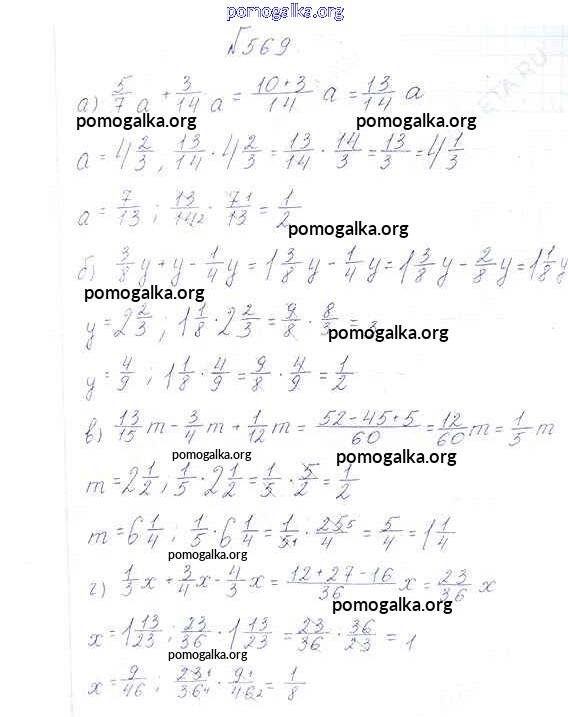 pomogalka.org
№569
а) 5/7 a + 3/14 a = (10+3)/14 a = 13/14 a
pomogalka.org pomogalka.org
a = 4 2/3, 13/14 · 4 2/3 = 13/14 · 14/3 = 13/3 = 4 1/3
a = 7/13 ; 13/14 2 · 7 1/13 = 1/2
pomogalka.org
б) 3/8 y + y - 1/4 y = 1 3/8 y - 1/4 y = 1 3/8 y - 2/8 y = 1 1/8 y
pomogalka.org
y = 2 2/3 ; 1 1/8 · 2 2/3 = 9/8 · 8/3 = 3
pomogalka.org
y = 4/9 ; 1 1/8 · 4/9 = 9/8 · 4/9 = 1/2
в) 13/15 m - 3/4 m + 1/12 m = (52-45+5)/60 = 12/60 m = 1/5 m
pomogalka.org pomogalka.org
m = 2 1/2 ; 1/5 · 2 1/2 = 1/5 · 5/2 = 1/2
m = 6 1/4 ; 1/5 · 6 1/4 = 1/5 1 · 25 5/4 = 5/4 = 1 1/4
pomogalka.org
г) 1/3 x + 3/4 x - 4/3 x = (12+27-16)/36 x = 23/36 x
pomogalka.org
x = 1 13/23 ; 23/36 · 1 13/23 = 23/36 · 36/23 = 1
pomogalka.org
x = 9/46 ; 23 1/36 4 · 9 1/46 2 = 1/8